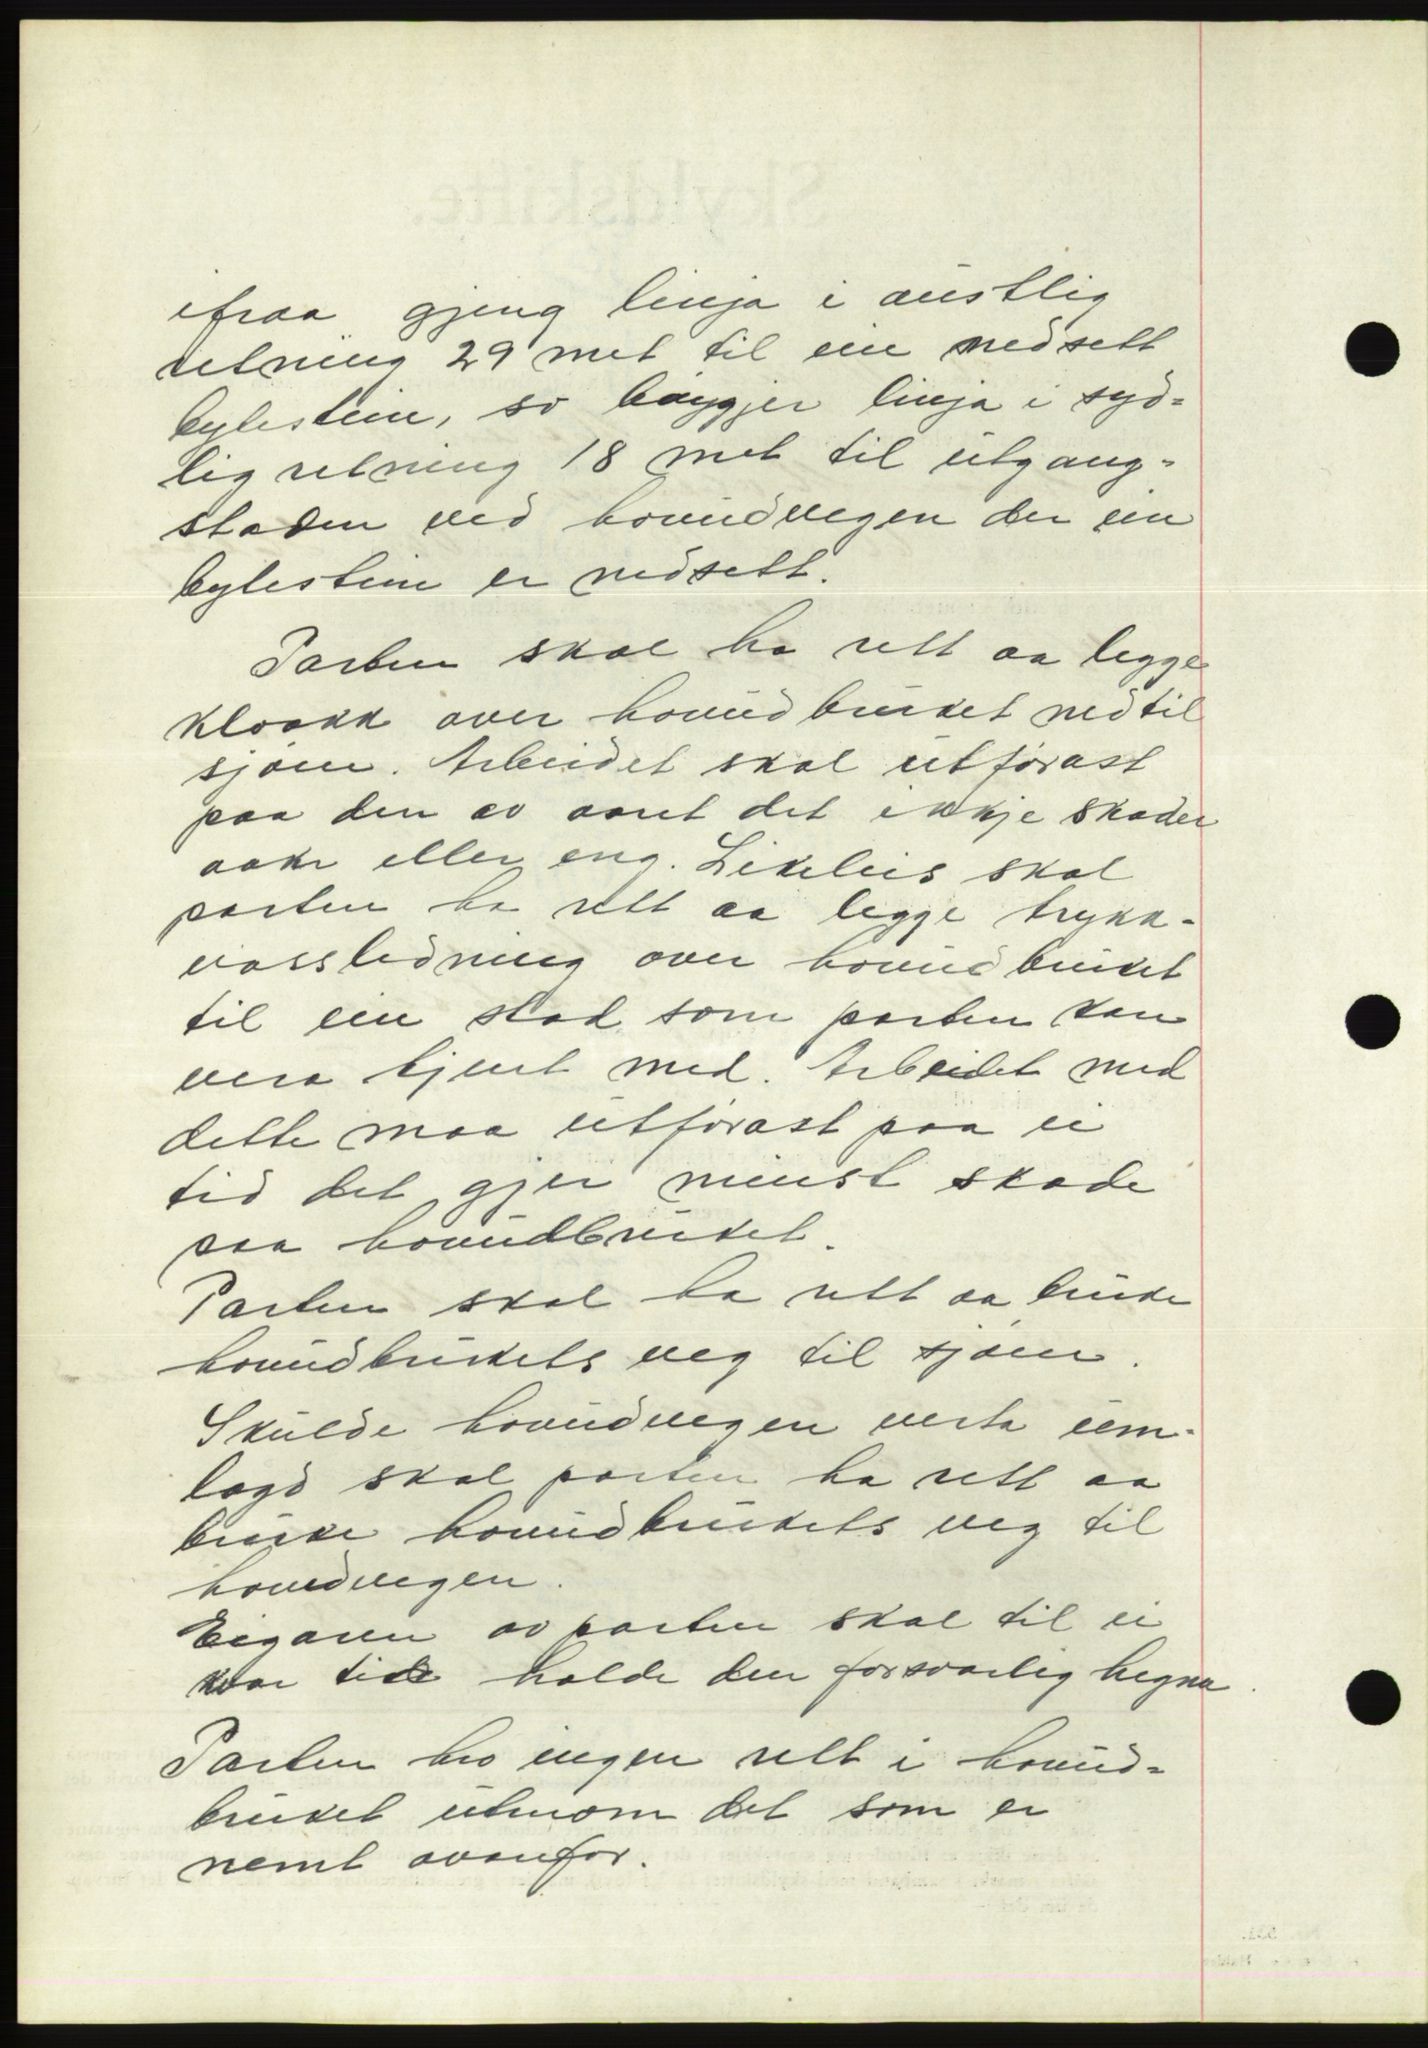 ifraa gjeng linja i austlig
retning 29 met til ein nedsett
bytestein, so bøygjer linja i syd-
lig retning 18 met til utgang-
staden ved hovudvegen der ein
bytestein er nedsett.
Parten skal ha rett aa legge
kloakk over hovudbruket ned til
sjøen. Arbeidet skal utførast
paa den av aaret det ikkje skader
aaker eller eng. Likeleis skal
parten ha rett aa legge trykk-
vassledning over hovudbruket
til ein stad som parten kan
vera tjent med. Arbeidet med
dette maa utførast paa ei
tid det gjer minst skade
paa hovudbruket.
Parten skal ha rett aa bruke
hovudbrukets veg til sjøen.
Skulde hovudvegen verta um-
lagd skal parten ha rett aa
bruke hovudbrukets veg til
hovudvegen.
Eigaren av parten skal til ei
kvar tid halde den forsvarlig hegna.
Parten hev ingen rett i hovud-
bruket utenom det som er
nemt ovanfor.